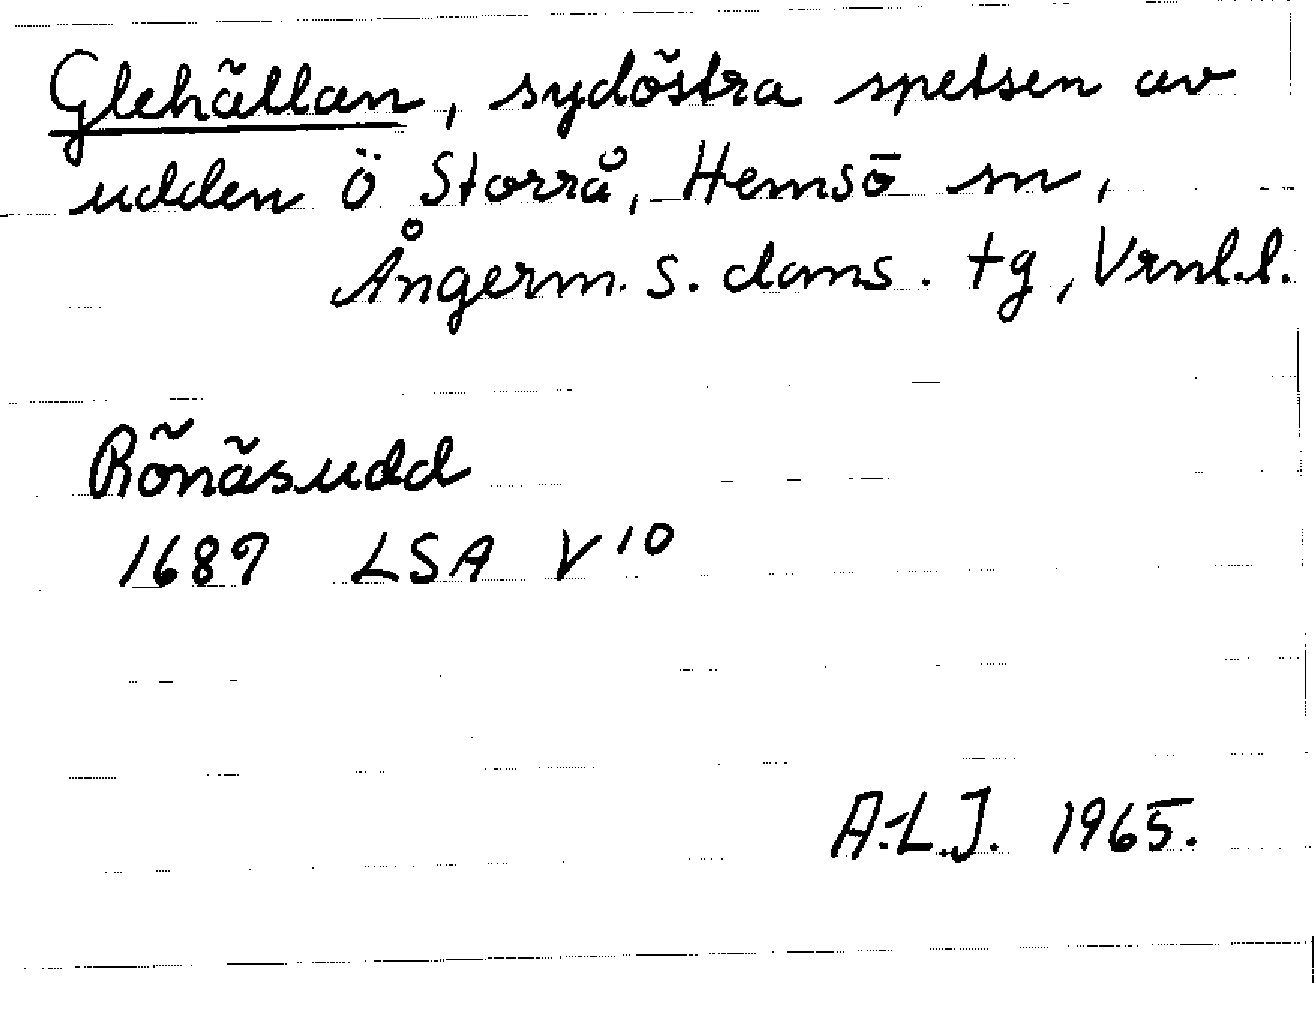 Glehällan, sydöstra spetsen av
udden Ö Storrå, Hemsö sn,
Ångerm. s. doms. tg, Vrnl.l.
Rönäsudd
1687 LSA V 10
A.-L.J. 1965.